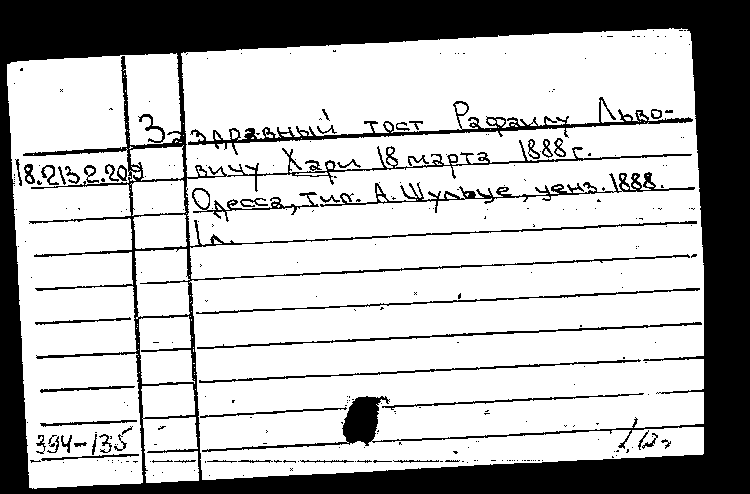 Заздравный тост Рафаилу Льво-
18.213.2.209 вичу Хари 18 марта 1888 г.
Одесса, тип. А. Шульце, ценз. 1888.
1 л.
394-135